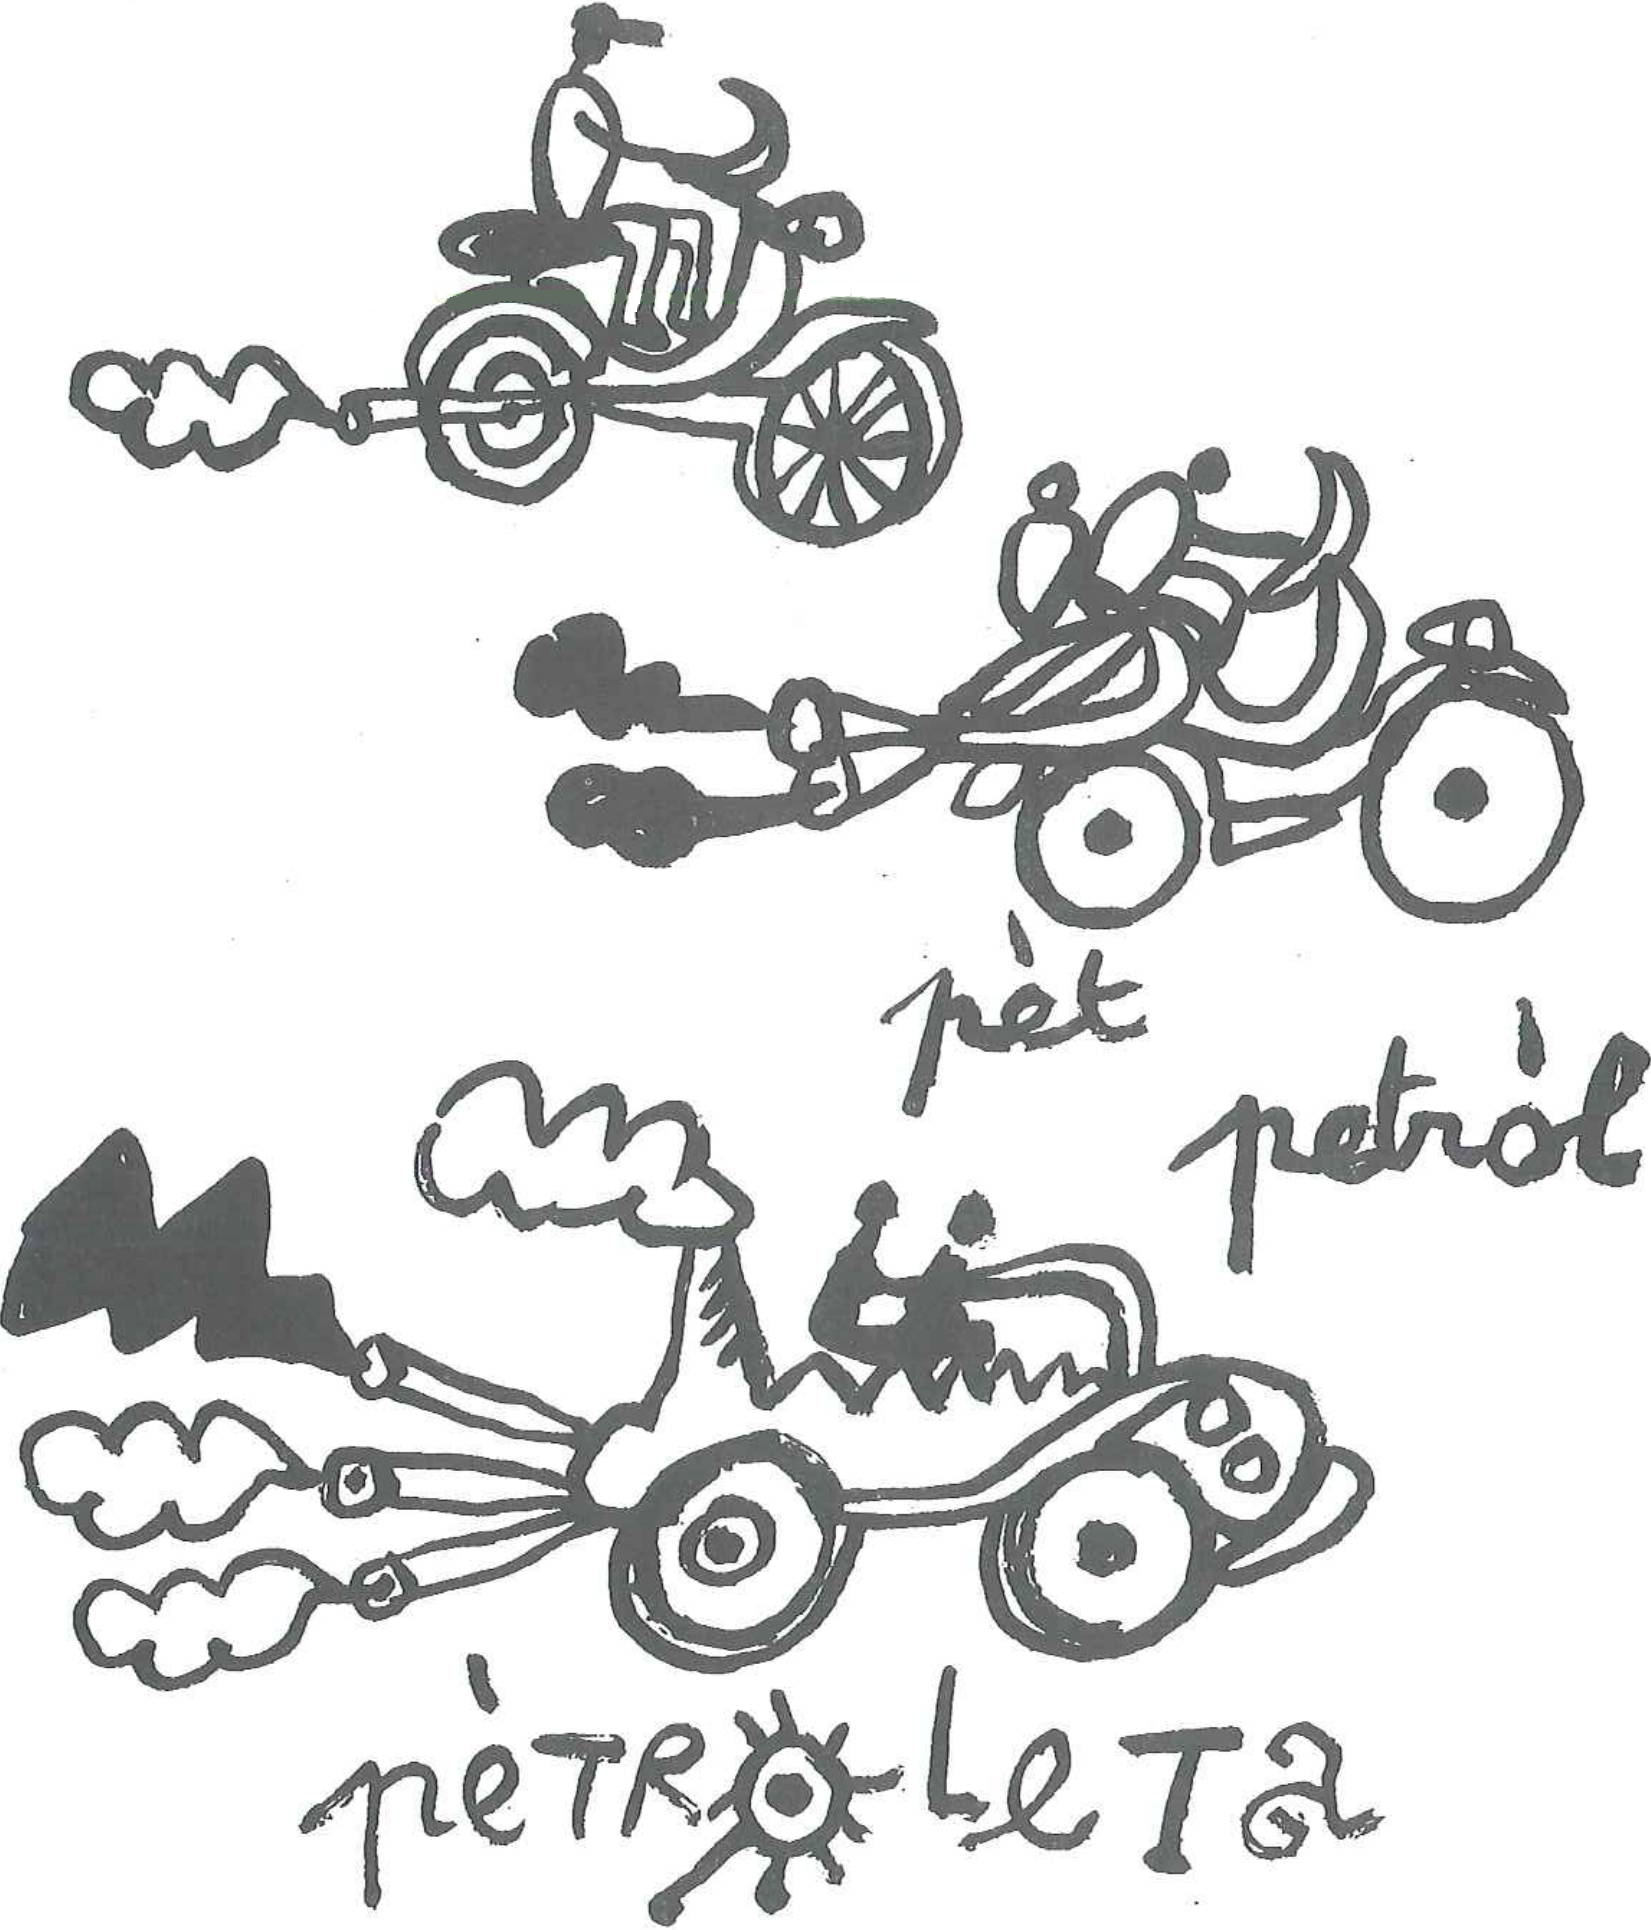 pèt
petròl
pèTROLeTa